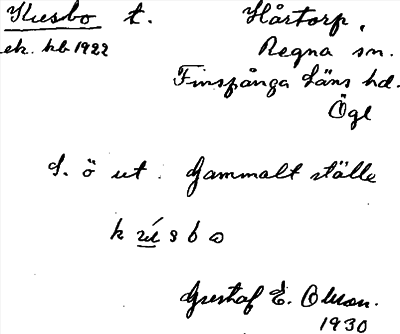 Kusbo t. Hårtorp,
ek. hb 1922 Regna sn.
Finspånga läns hd.
Ögl
S. ö ut. Gammalt ställe
k u s b o
Gustaf E. Olsson.
1930